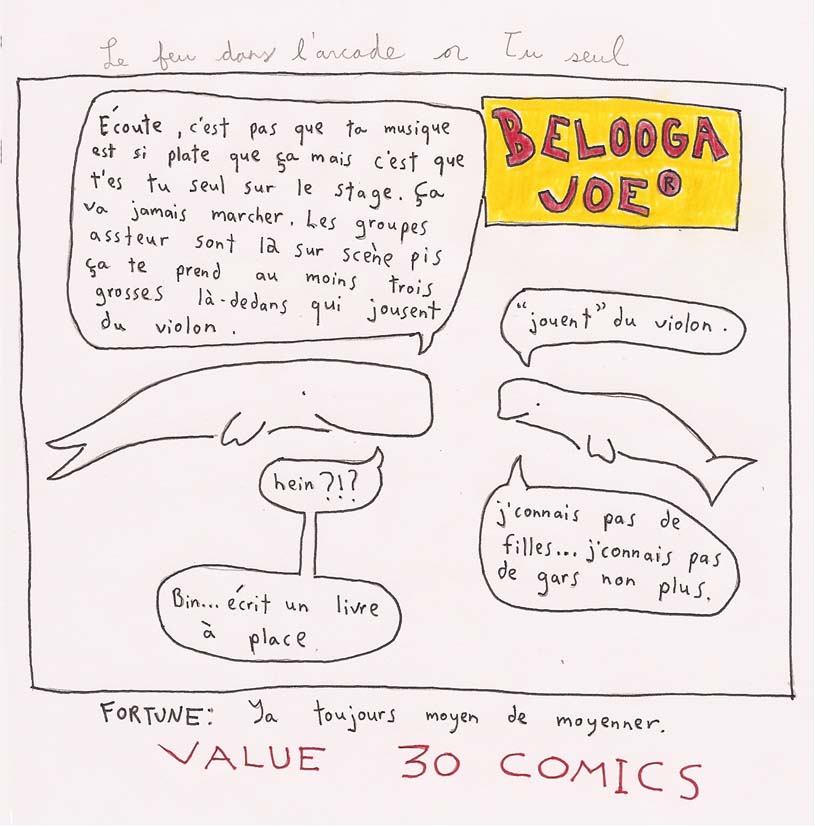 Le feu dans l'arcade or Tu seul
BELOOGA
JOE®
Écoute, c'est pas que ta musique
est si plate que ça mais c'est que
t'es tu seul sur le stage. Ça
va jamais marcher. Les groupes
assteur sont là sur scène pis
ça te prend au moins trois
grosses là-dedans qui jousent
du violon.
"jouent" du violon.
hein ?!?
j'connais pas de
filles... j'connais pas
de gars non plus.
Bin... écrit un livre
à place
FORTUNE: Ya toujours moyen de moyenner.
VALUE 30 COMICS